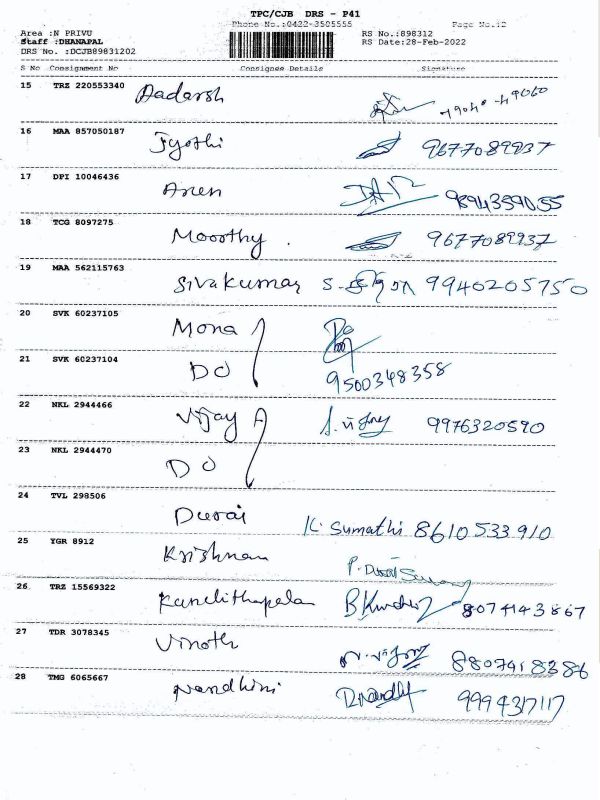 TPC/CJB DRS - P41
Phone No.:0422-3505555
Page No.:2
Area :N PRIVU
Staff :DHANAPAL
DRS No. :DCJB89831202
RS No.:898312
RS Date:28-Feb-2022
S No Consignment No Consignee Details Signature
15 TRZ 220553340 Aadarsh
16 MAA 857050187 Jyothi 9677089937
17 DPI 10046436 Aren 9894359055
18 TCG 8097275 Moorthy . 9677089937
19 MAA 562115763 Sivakumar 9940205750
20 SVK 60237105 Mona
21 SVK 60237104 DO 9500348358
22 NKL 2944466 Vijay A 9976320590
23 NKL 2944470 DO
24 TVL 298506 Durai K. Sumathi 8610533910
25 YGR 8912 Krishnan
26 TRZ 15569322 8074143867
27 TDR 3078345 Vinoth 8807418386
28 TMG 6065667 Nandhini 9994317117